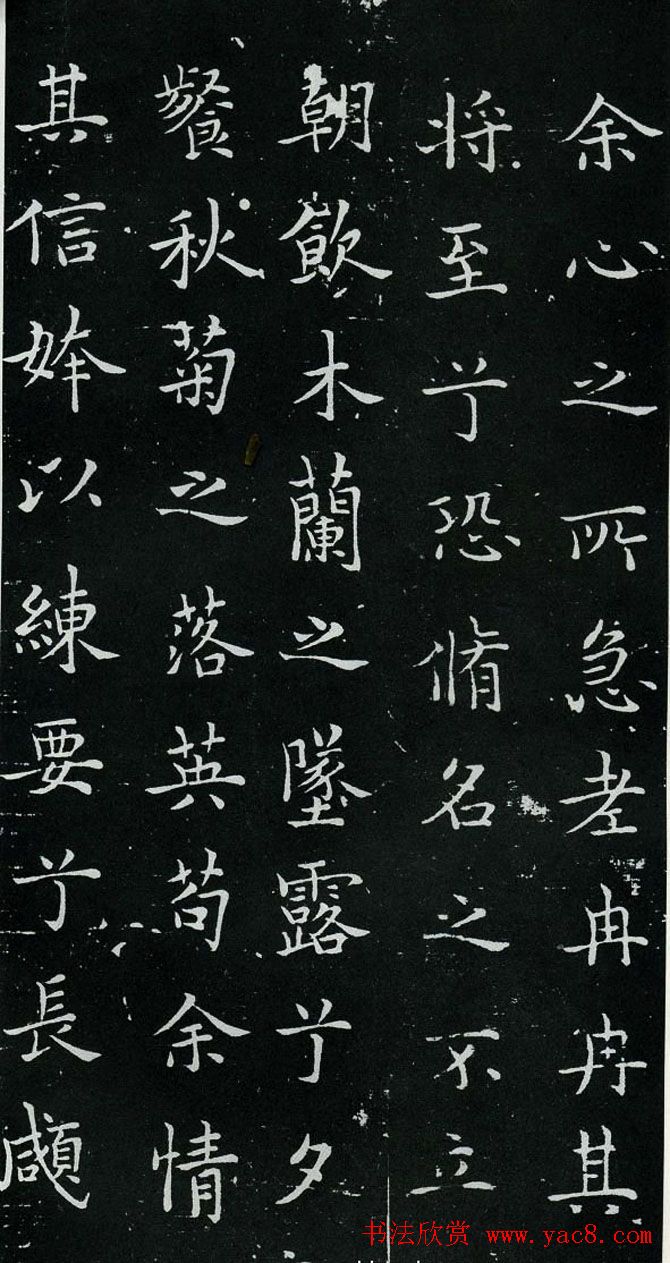 余心之所急老冉冉其
将至兮恐脩名之不立
朝飲木蘭之墜露兮夕
餐秋菊之落英苟余情
其信姱以練要兮長顑
书法欣赏 www.yac8.com